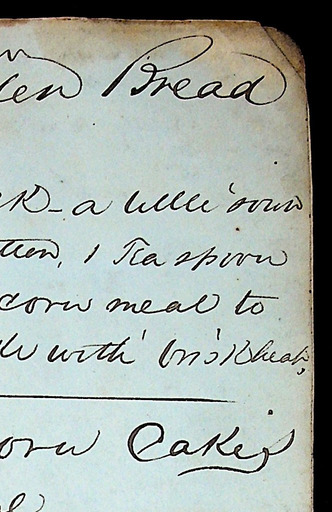 Bread
a little sour
1 Tea spoon
corn meal to
with brisk heat,
Corn Cakes